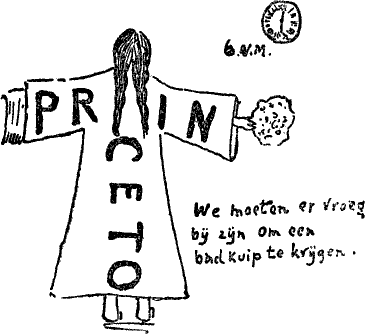 6 V.M.
PRIN
CETO
We moeten er vroeg
bij zijn om een
badkuip te krijgen.